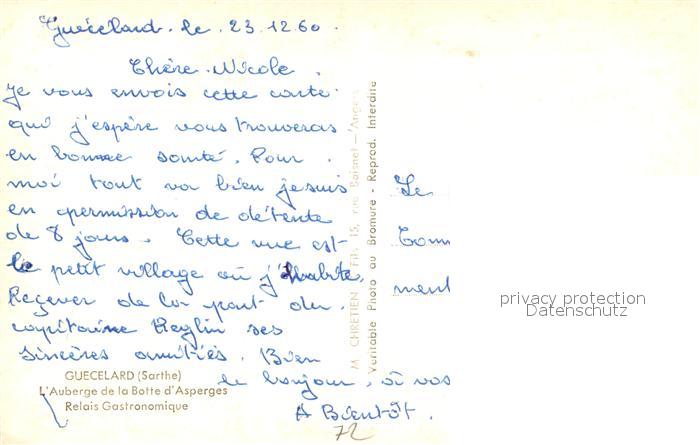 Guécelard. le. 23.12.60.
Chère. Nicole.
Je vous envois cette carte.
qui j'espère vous trouveras
en bonne santé. Pour.
moi tout va bien je suis
en permission de détente
de 8 jours. Cette vue est
le petit village où j'habite,
Reçever de la part du.
capitaine Reglin ses
sincères amitiés. Bien
le bonjour, à vos
A Bientôt.
72
GUECELARD (Sarthe)
L'Auberge de la Botte d'Asperges
Relais Gastronomique
M. CHRETIEN FILS 15, rue Boisnet - Angers
Véritable Photo au Bromure - Reprod. Interdite
Le
ment
privacy protection
Datenschutz